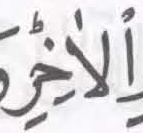 اَلْاٰخِرَة